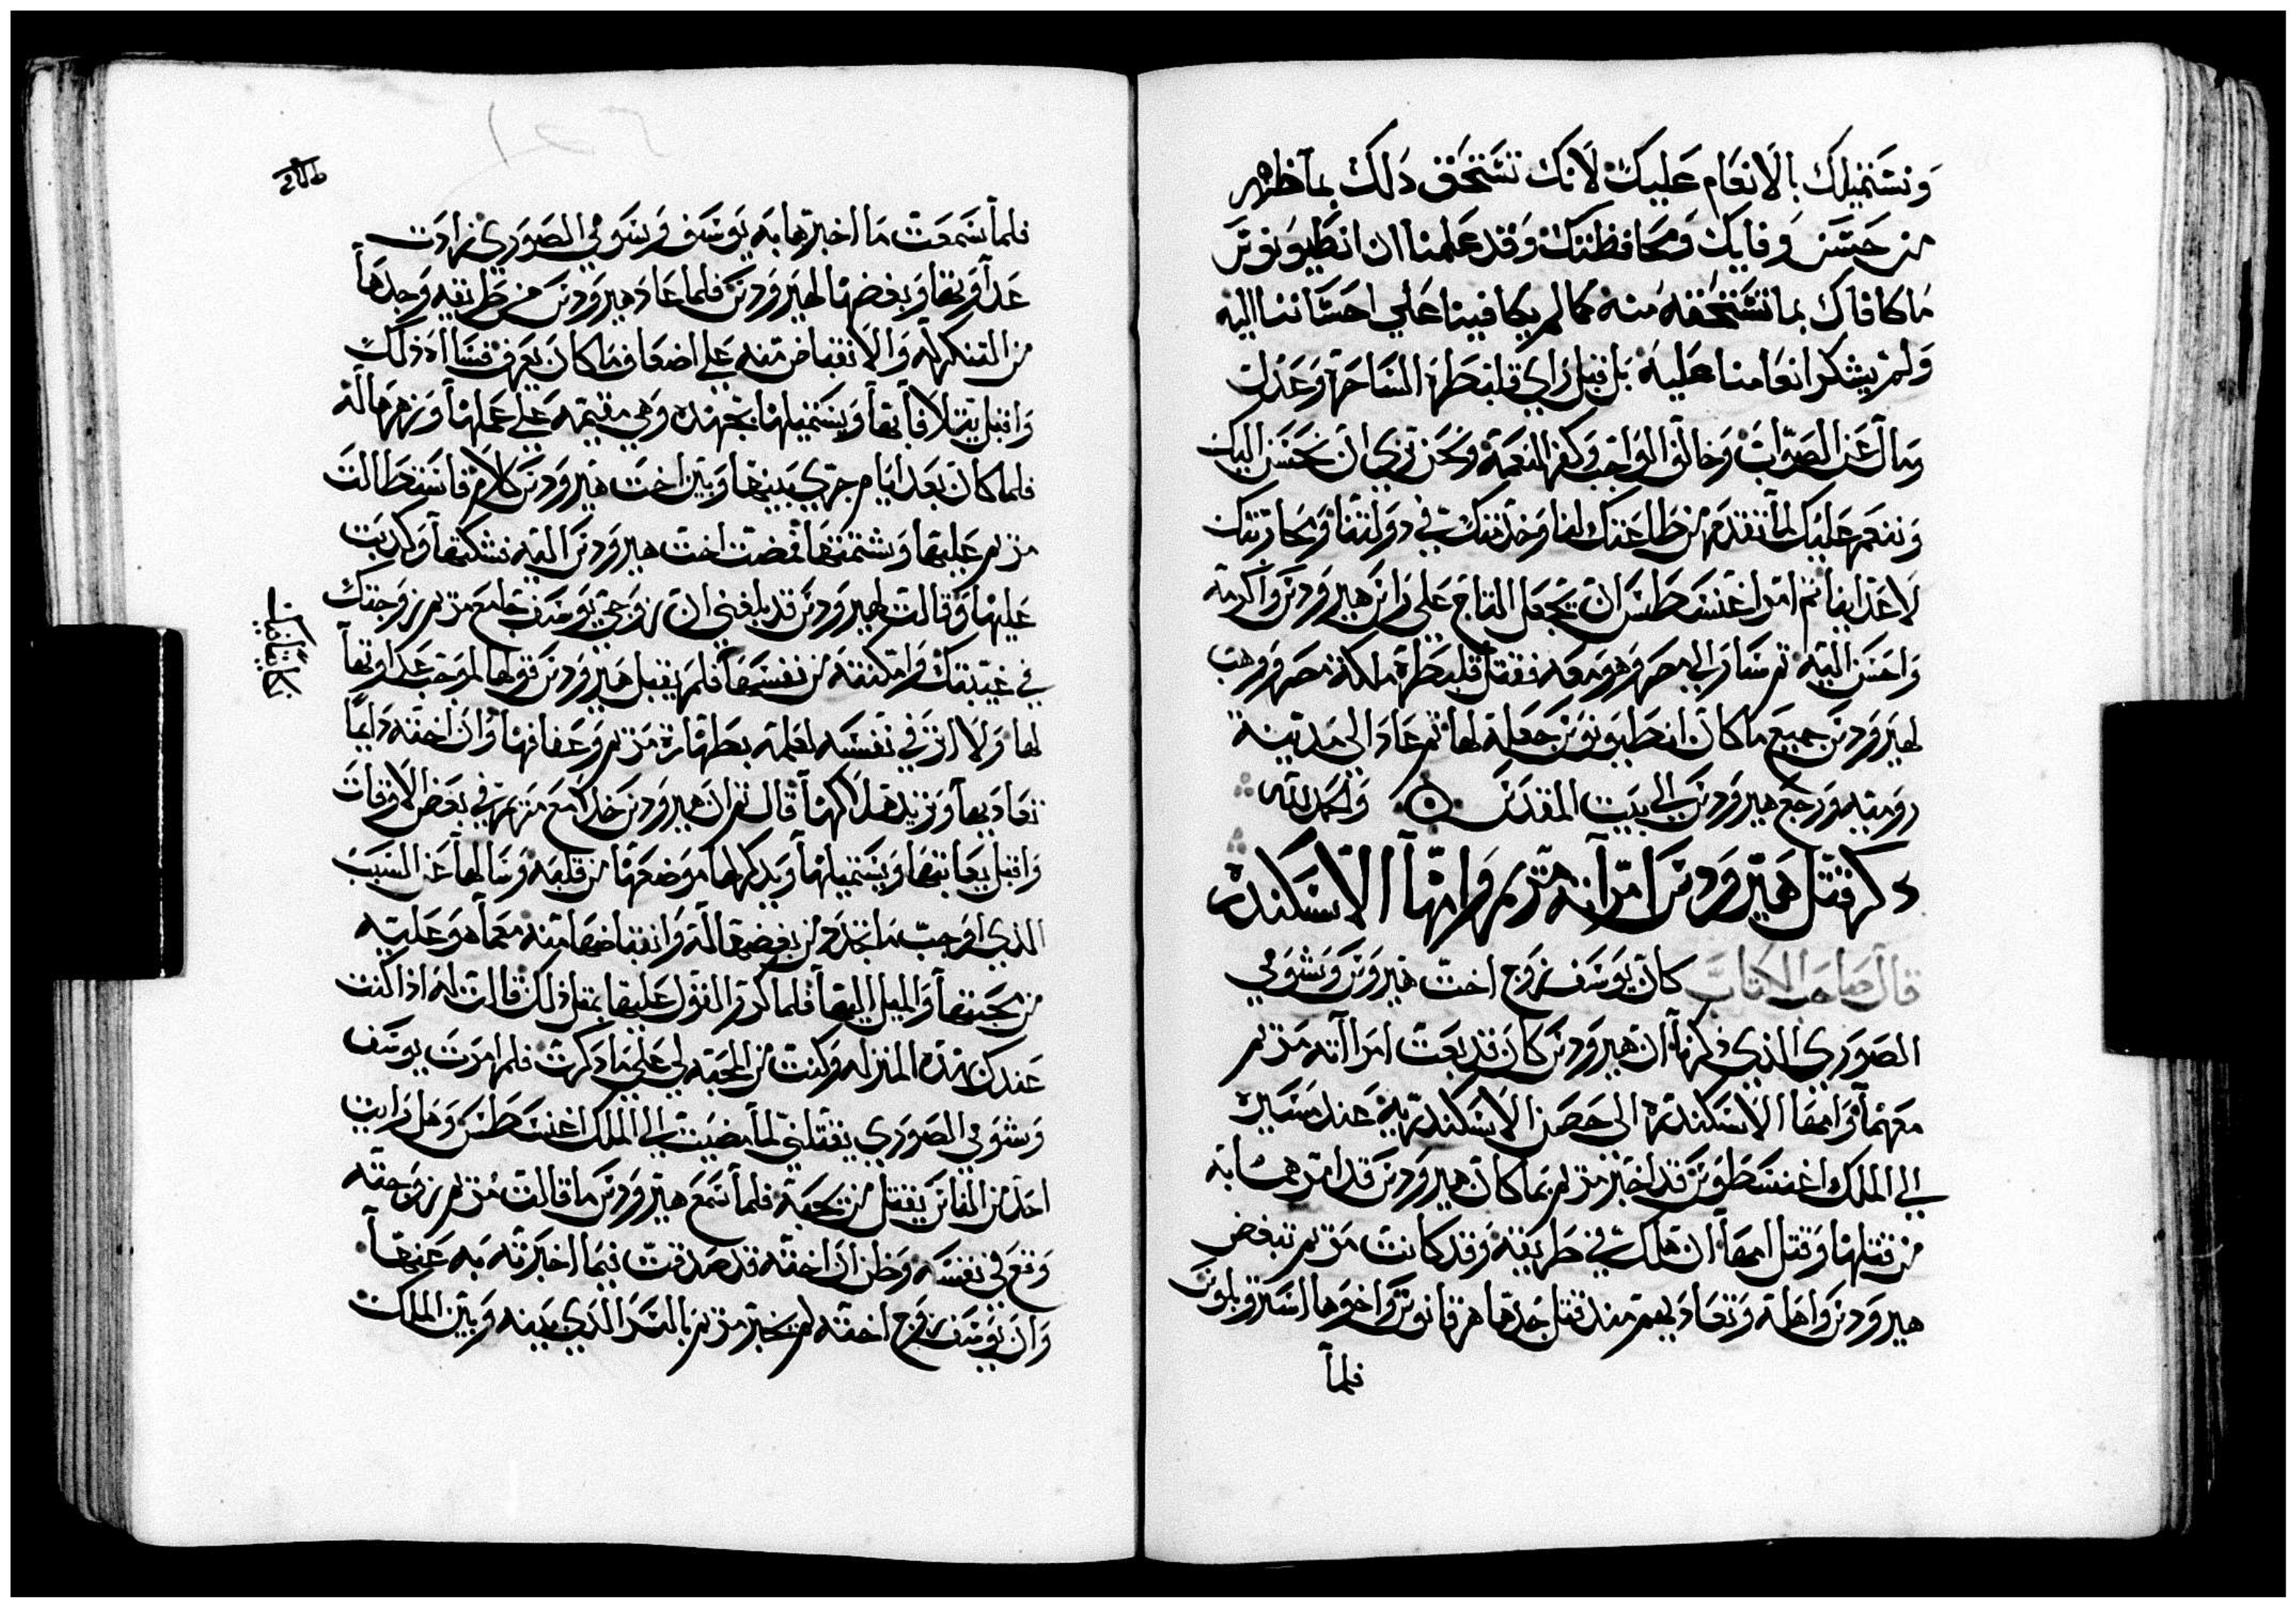 ونستميلك بالانعام عليك لانك تستحق دلك بما ظهر
من حسن وفايك ومحافظتك وقد علمنا ان انطيونوس
ما كافاك بما تستحقه منه كما لم يكافينا علي احساننا اليه
ولم يشكر انعامنا عليه بل قبل راي قلبطرة الساحرة وعدل
ومال عن الصواب وخالف الواجب وكفر النعمة ونحن نري ان نحسن اليك
وننعم عليك لما تقدم من طاعتك لنا وخدمتك في دولتنا ومحاربتك
لاعداينا ثم امر اغنسطس ان يجعل التاج علي راس هيرودس واكرمه
واحسن اليه ثم سار الي مصر وهو معه فقتل قلبطرة ملكة مصر ووهب
لهيرودس جميع ما كان انطيونوس جعله لها ثم عاد الي مدينة
رومية ورجع هيرودس الي بيت المقدس ۞ والحمد لله
دكر قتل هيرودس امراته مريم وامها الاسكندره
قال صاحب الكتاب كان يوسف زوج اخت هيرودس وشومي
الصوري الذي ذكرنا ان هيرودس كان قد بعت امراته مريم
معهما وامها الاسكندره الي حصن الاسكندرية عند مسيره
الي الملك اغنسطوس قد اخبر مريم بما كان هيرودس قد امرهما به
من قتلها وقتل امها ان هلك في طريقه وقد كانت مريم تبغض
هيرودس واهله وتعاديهم مند قتل جدها هرقانوس واخوها استروبلوس
فلما
فلما سمعت ما اخبرها به يوسف وشومي الصوري زادت
عداوتها وبغضها لهيرودس فلما عاد هيرودس من طريقه وجدها
من التنكر له والانقباض منه علي اضعاف ما كان يعرف فساه ذلك
واقبل يتلافاها ويستميلها بجهده وهي مقيمة علي عملها وزهرها له
فلما كان بعد ايام جري بينها وبين اخت هيرودس كلام فاستطالت
مريم عليها وشتمتها فمضت اخت هيرودس اليه تشكيها وكدبت
عليها وقالت لهيرودس قد بلغني ان زوجي يوسف جامع مريم زوجتك
في غيبتك وامكنته من نفسها فلم يقبل هيرودس قولها لموجب عداوتها
لها ولا اثر في نفسه لعلمه بطهارة مريم وعفافها وان اخته دايما
تعاديها وتريد هلاكها قال ثم ان هيرودس خلا مع مريم في بعض الاوقات
واقبل يعاتبها ويستميلها ويدكر لها موضعها من قلبه وسالها عن السبب
الذي اوجب ما تجدد من بغضها له وانقباضها منه معما هو عليه
من محبتها والميل اليها فلما كرر القول عليها بمثل ذلك قالت له اذا كنت
عندك بهذه المنزله وكنت من المحبه لي علي ما دكرت فلم امرت يوسف
وشومي الصوري بقتلي لما مضيت الي الملك اغنسطس وهل رايت
احد من الناس يقتل من يحبه فلما سمع هيرودس ما قالت مريم زوجته
وقع في نفسه وظن ان اخته قد صدقت فيما اخبرته به عنها
وان يوسف زوج اخته لم يخبر مريم بالسر الذي بينه وبين الملك